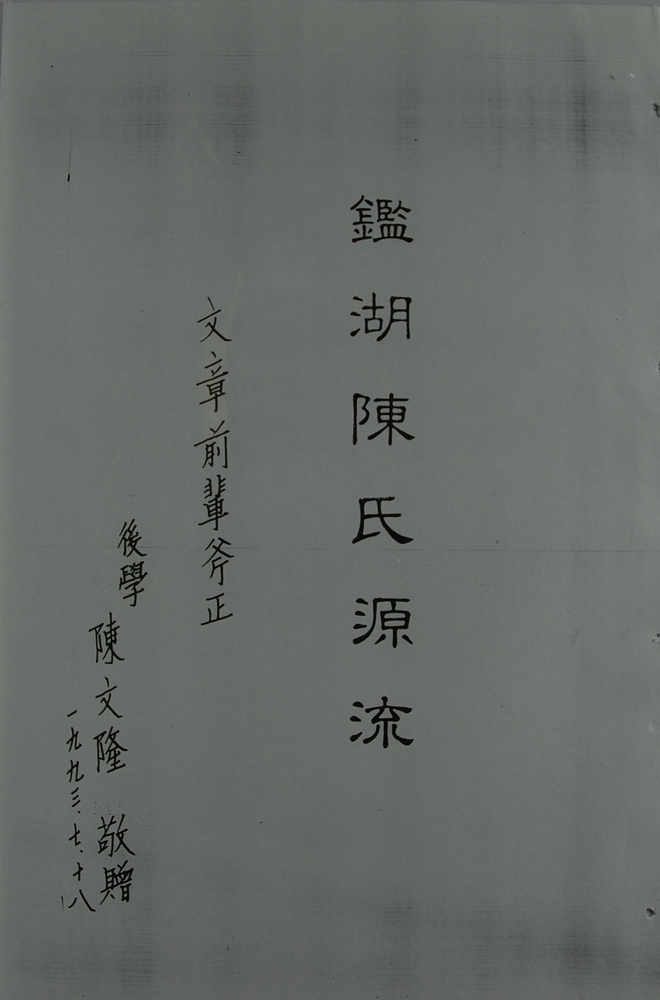 鑑湖陳氏源流
文章前輩斧正
後學
陳文隆 敬贈
一九九三.七.十八